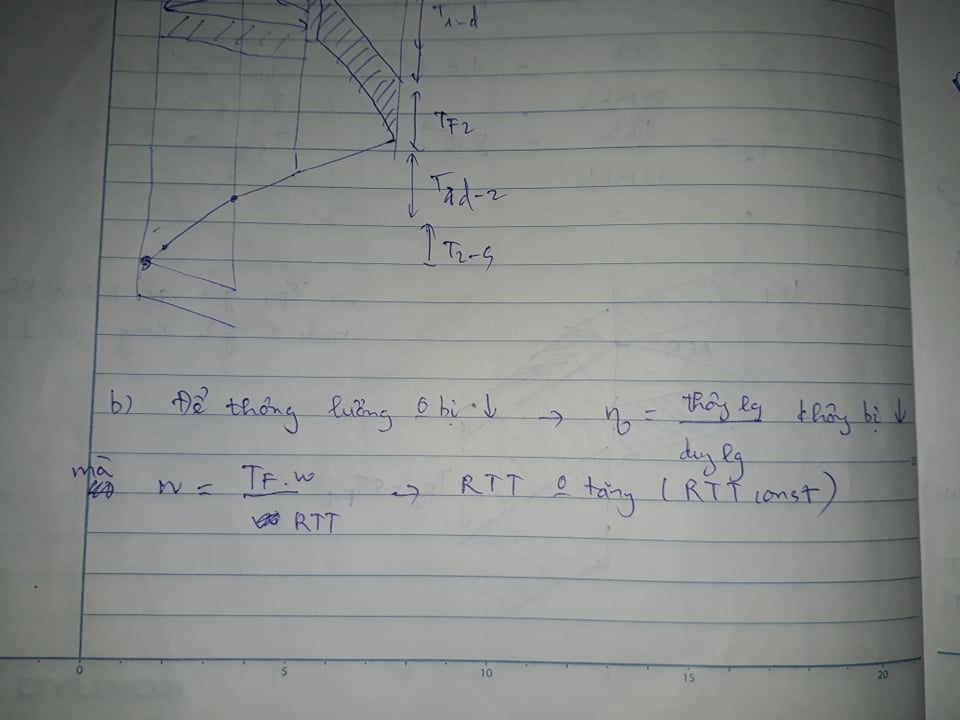 T1-d
TF2
Tđd-2
T2-S
b) Để thông lường 0 bị ↓ → η = thông lg / dug lg không bị ↓
mà η = TF.w / RTT → RTT 0 tăng (RTT const)
0 5 10 15 20